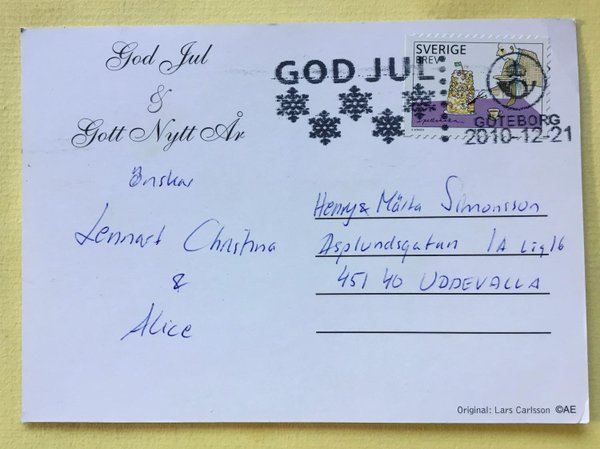 God Jul
&
Gott Nytt År
Önskar
Lennart Christina
&
Alice
GOD JUL
SVERIGE
BREV
GÖTEBORG
2010-12-21
Henry & Märta Simonsson
Asplundsgatan 1A Lig 16
451 40 UDDEVALLA
Original: Lars Carlsson ©AE